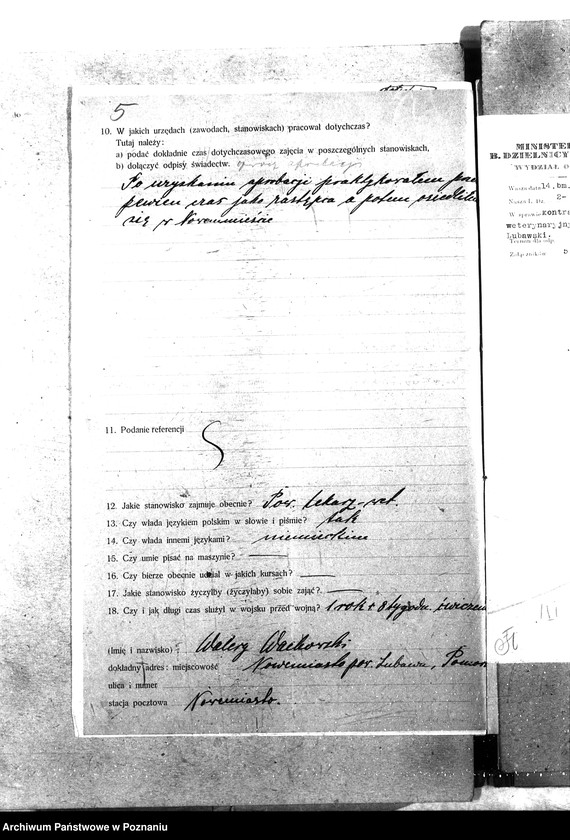 5
10. W jakich urzędach (zawodach, stanowiskach) pracował dotychczas?
Tutaj należy:
a) podać dokładnie czas dotychczasowego zajęcia w poszczególnych stanowiskach,
b) dołączyć odpisy świadectw.
Po uzyskaniu aprobacji praktykowałem
pewien czas jako zastępca a potem osiedliłem
się w Nowemmieście
11. Podanie referencji
12. Jakie stanowisko zajmuje obecnie? Pow. lekarz-wet.
13. Czy włada językiem polskim w słowie i piśmie? tak
14. Czy włada innemi językami? niemieckim
15. Czy umie pisać na maszynie? ——
16. Czy bierze obecnie udział w jakich kursach? ——
17. Jakie stanowisko życzyłby (życzyłaby) sobie zająć? ——
18. Czy i jak długi czas służył w wojsku przed wojną? 1 rok + 8 tygodn. ćwiczeń
(Imię i nazwisko) Walery Wachowski
dokładny adres: miejscowość Nowemiasto pow. Lubawa, Pomorze
ulica i numer
stacja pocztowa Nowemiasto.
MINISTE
B. DZIELNICY
WYDZIAŁ O
Warszawa 14. bm.
Nasza L. Dz. 2-
W sprawie kontra
weterynaryjny
Lubawski.
Termin dla odp.
Załączników
Archiwum Państwowe w Poznaniu